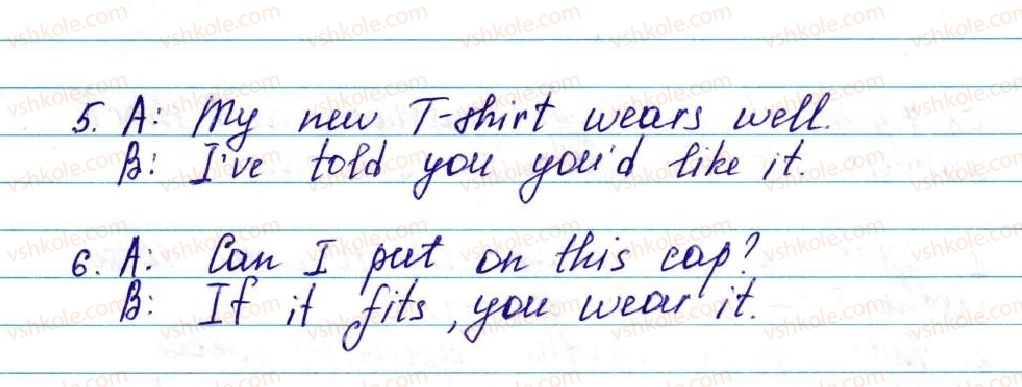 5. A: My new T-shirt wears well.
B: I've told you you'd like it.
6. A: Can I put on this cap?
B: If it fits, you wear it.